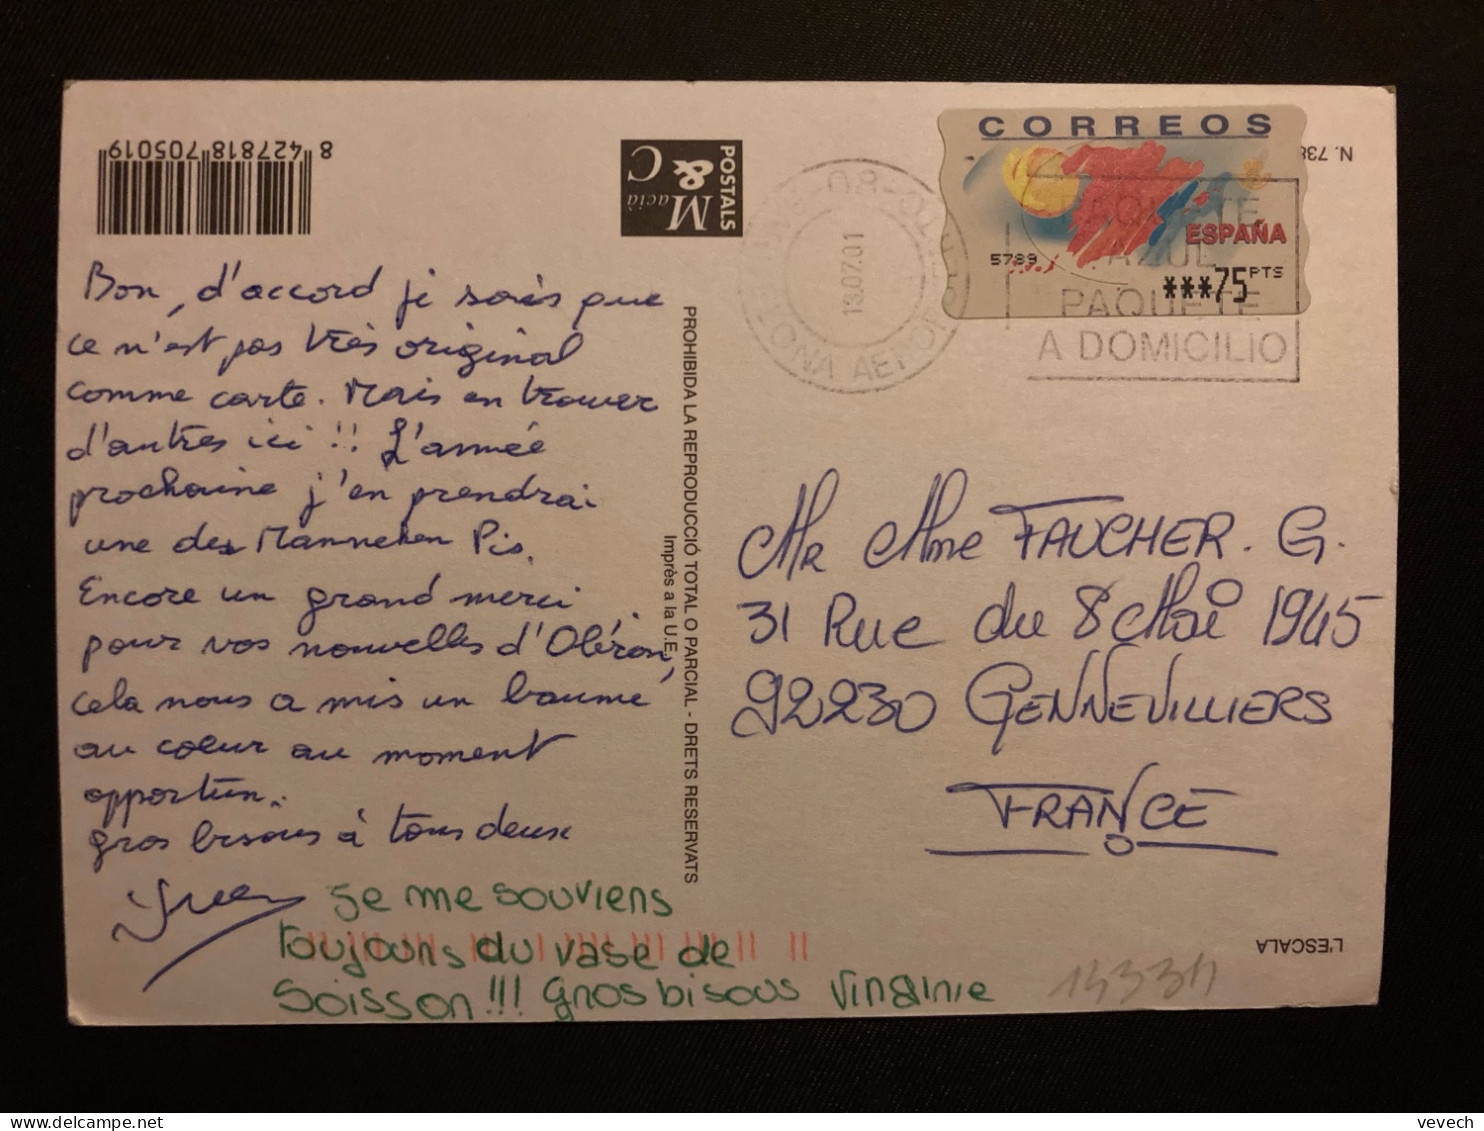 8 427818 705019
POSTALS
Macià
&
C
CORREOS
ESPAÑA
5789
***75 PTS
N. 738
13.07.01
PAQUETE
AZUL
PAQUETE
A DOMICILIO
Bon, d'accord je sais que
ce n'est pas très original
comme carte. Mais en trouver
d'autres ici !! L'année
prochaine j'en prendrai
une des Manneken Pis.
Encore un grand merci
pour vos nouvelles d'Oléron,
cela nous a mis un baume
au coeur au moment
opportun.
gros bisous à tous deux
PROHIBIDA LA REPRODUCCIÓ TOTAL O PARCIAL - DRETS RESERVATS
Imprès a la U.E.
Mr Mme FAUCHER. G.
31 Rue du 8 Mai 1945
92230 GENNEVILLIERS
FRANCE
Je me souviens
toujours du vase de
Soisson!!! gros bisous Virginie
L'ESCALA